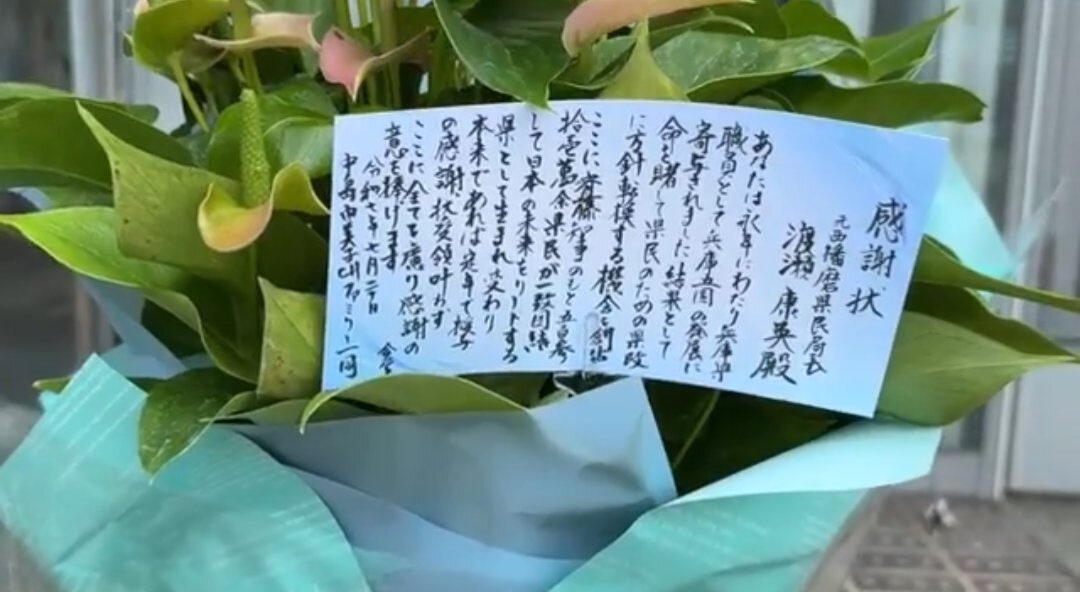 感謝状
元西播磨県民局長
渡瀬 康英殿
あなたは永年にわたり兵庫県
職員として兵庫五国の発展に
寄与されました結果として
命を賭して県民のための県政
に方針転換する機会創出
ここに斉藤知事のもと五百参
拾壱萬余県民が一致団結
して日本の未来をリードする
県として生まれ変わり
本来であれば定年で授与
の感謝状受領叶わず
ここに全てを慮り感謝の
意を捧げます
令和七年七月二日